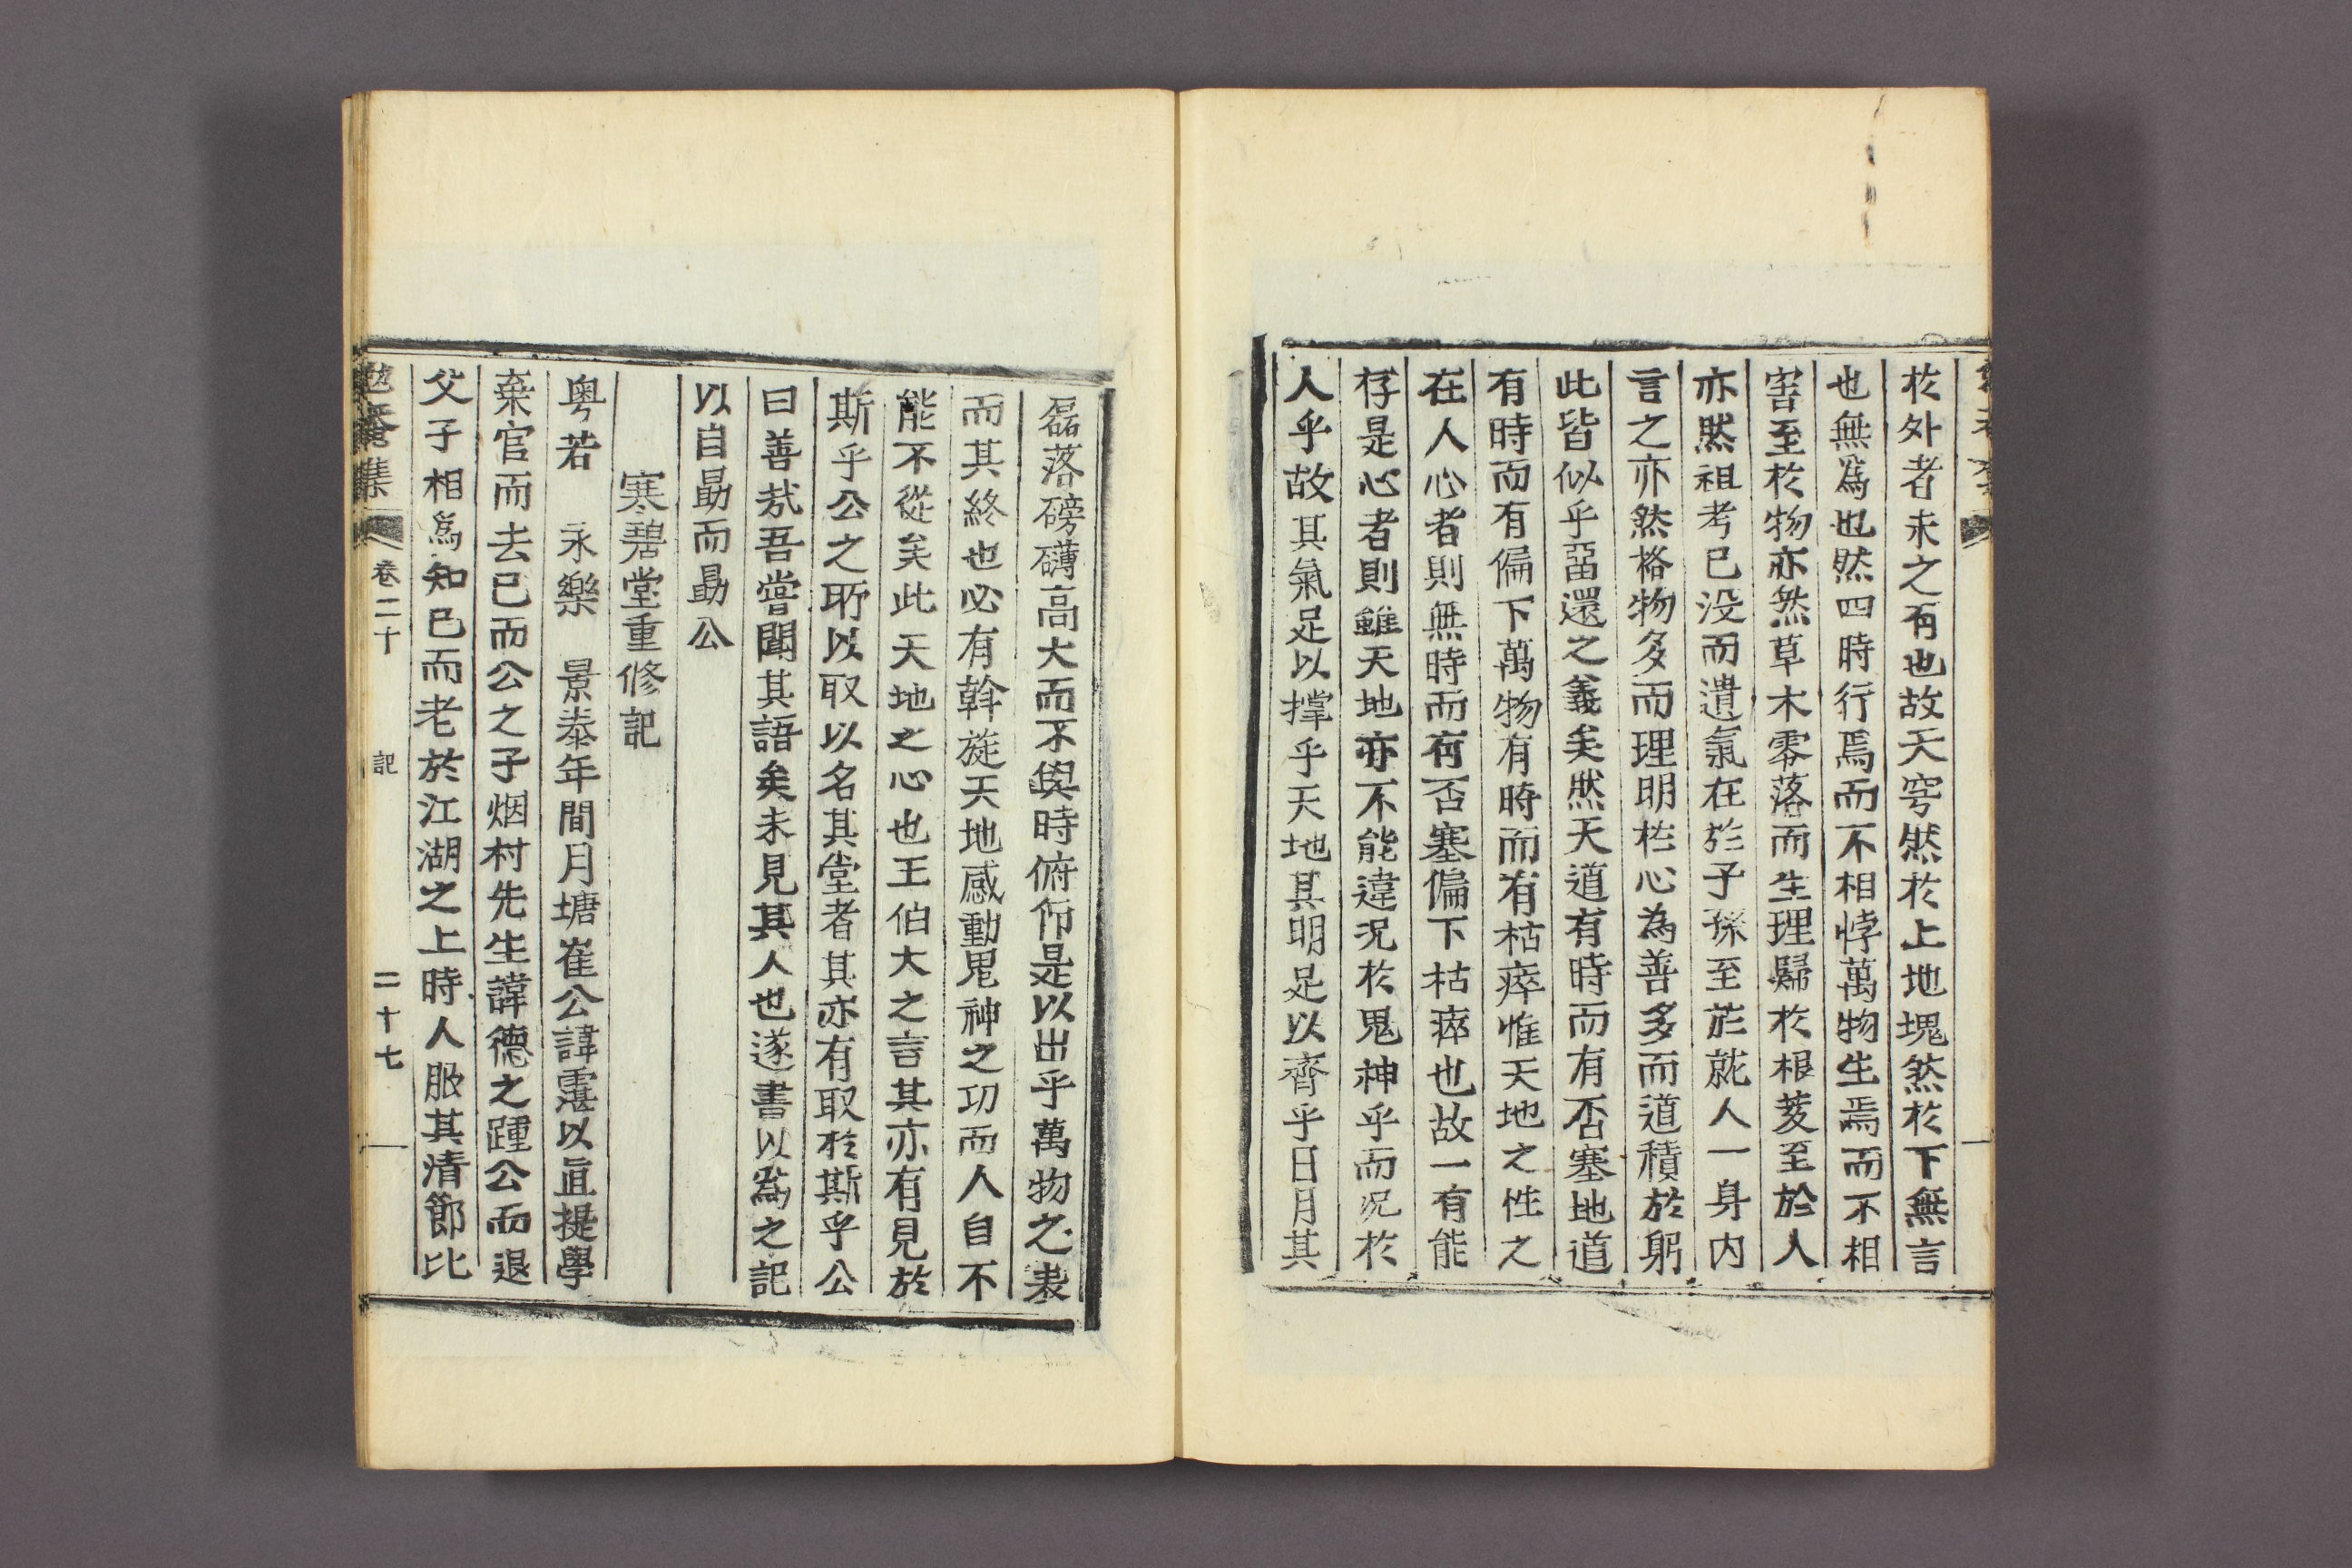 於外者未之有也故天穹然於上地塊然於下無言
也無爲也然四時行焉而不相悖萬物生焉而不相
害至於物亦然草木零落而生理歸於根荄至於人
亦然祖考已没而遺氣在於子孫至於就人一身内
言之亦然格物多而理明於心為善多而道積於躬
此皆似乎畱還之義矣然天道有時而有否塞地道
有時而有偏下萬物有時而有枯瘁惟天地之性之
在人心者則無時而有否塞偏下枯瘁也故一有能
存是心者則雖天地亦不能違况於鬼神乎而况於
人乎故其氣足以撑乎天地其明足以齊乎日月其
磊落磅礴高大而不與時俯仰是以出乎萬物之表
而其終也必有斡旋天地感動鬼神之功而人自不
能不從矣此天地之心也王伯大之言其亦有見於
斯乎公之所以取以名其堂者其亦有取於斯乎公
曰善哉吾嘗聞其語矣未見其人也遂書以爲之記
以自勗而勗公
寒碧堂重修記
粤若 永樂 景泰年間月塘崔公諱霮以直提學
棄官而去已而公之子烟村先生諱德之踵公而退
父子相爲知已而老於江湖之上時人服其清節比
勉菴集 卷二十 記 二十七